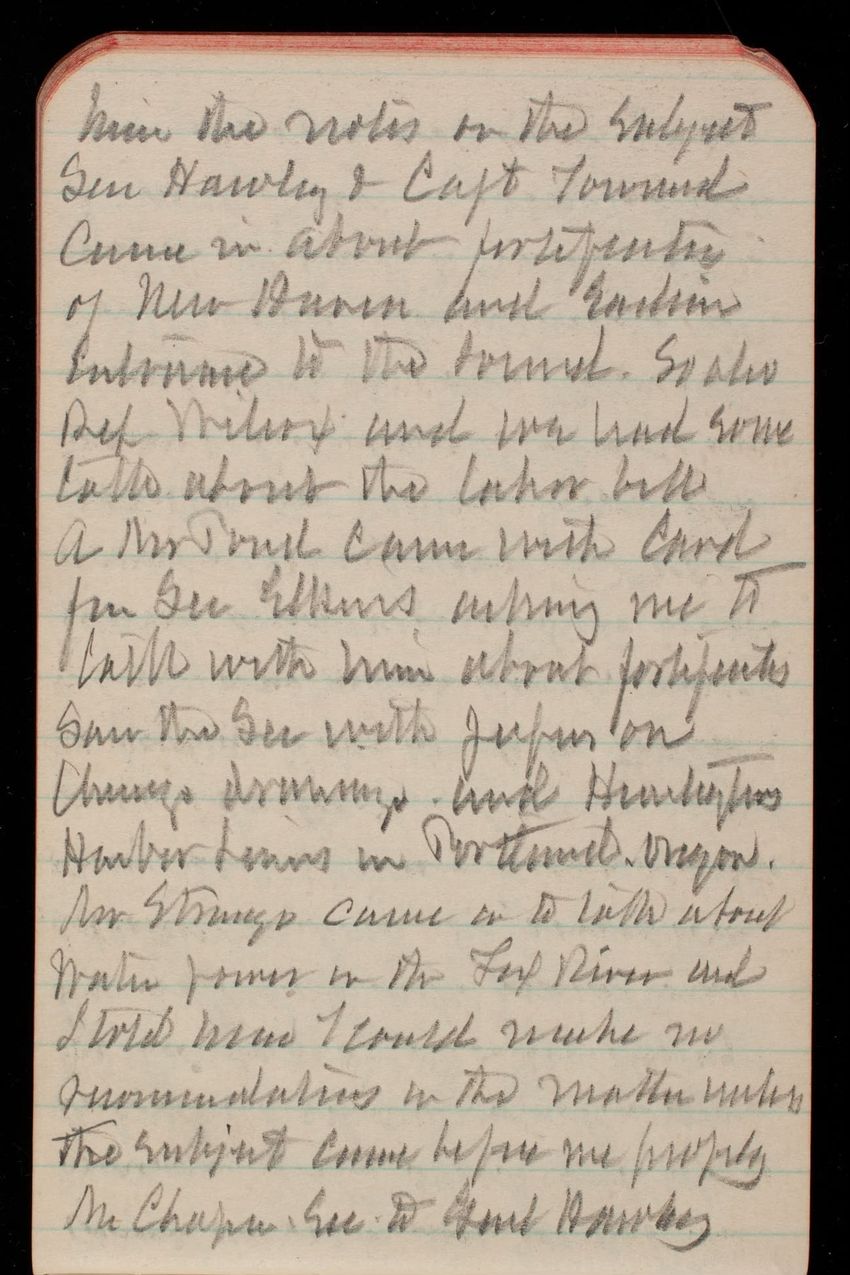 him the notes on the subject
Gen Hawley & Capt Townsend
Came in about fortificatin
of New Haven and Eastern
Entrance to the Sound. So also
Rep Wilcox and we had some
talk about the labor bill
A Mr Pond Came with Card
for Sec Elkins asking me to
talk with him about fortificatis
Saw the Sec with on
Chicago drawings. and
Harbor Lines in Portland. Oregon.
Mr Strange came in to talk about
Water power on the Fox River and
I told him I could make no
recommendations in the matter unless
the subject came before me properly
Mr Sec. to Genl Hawley